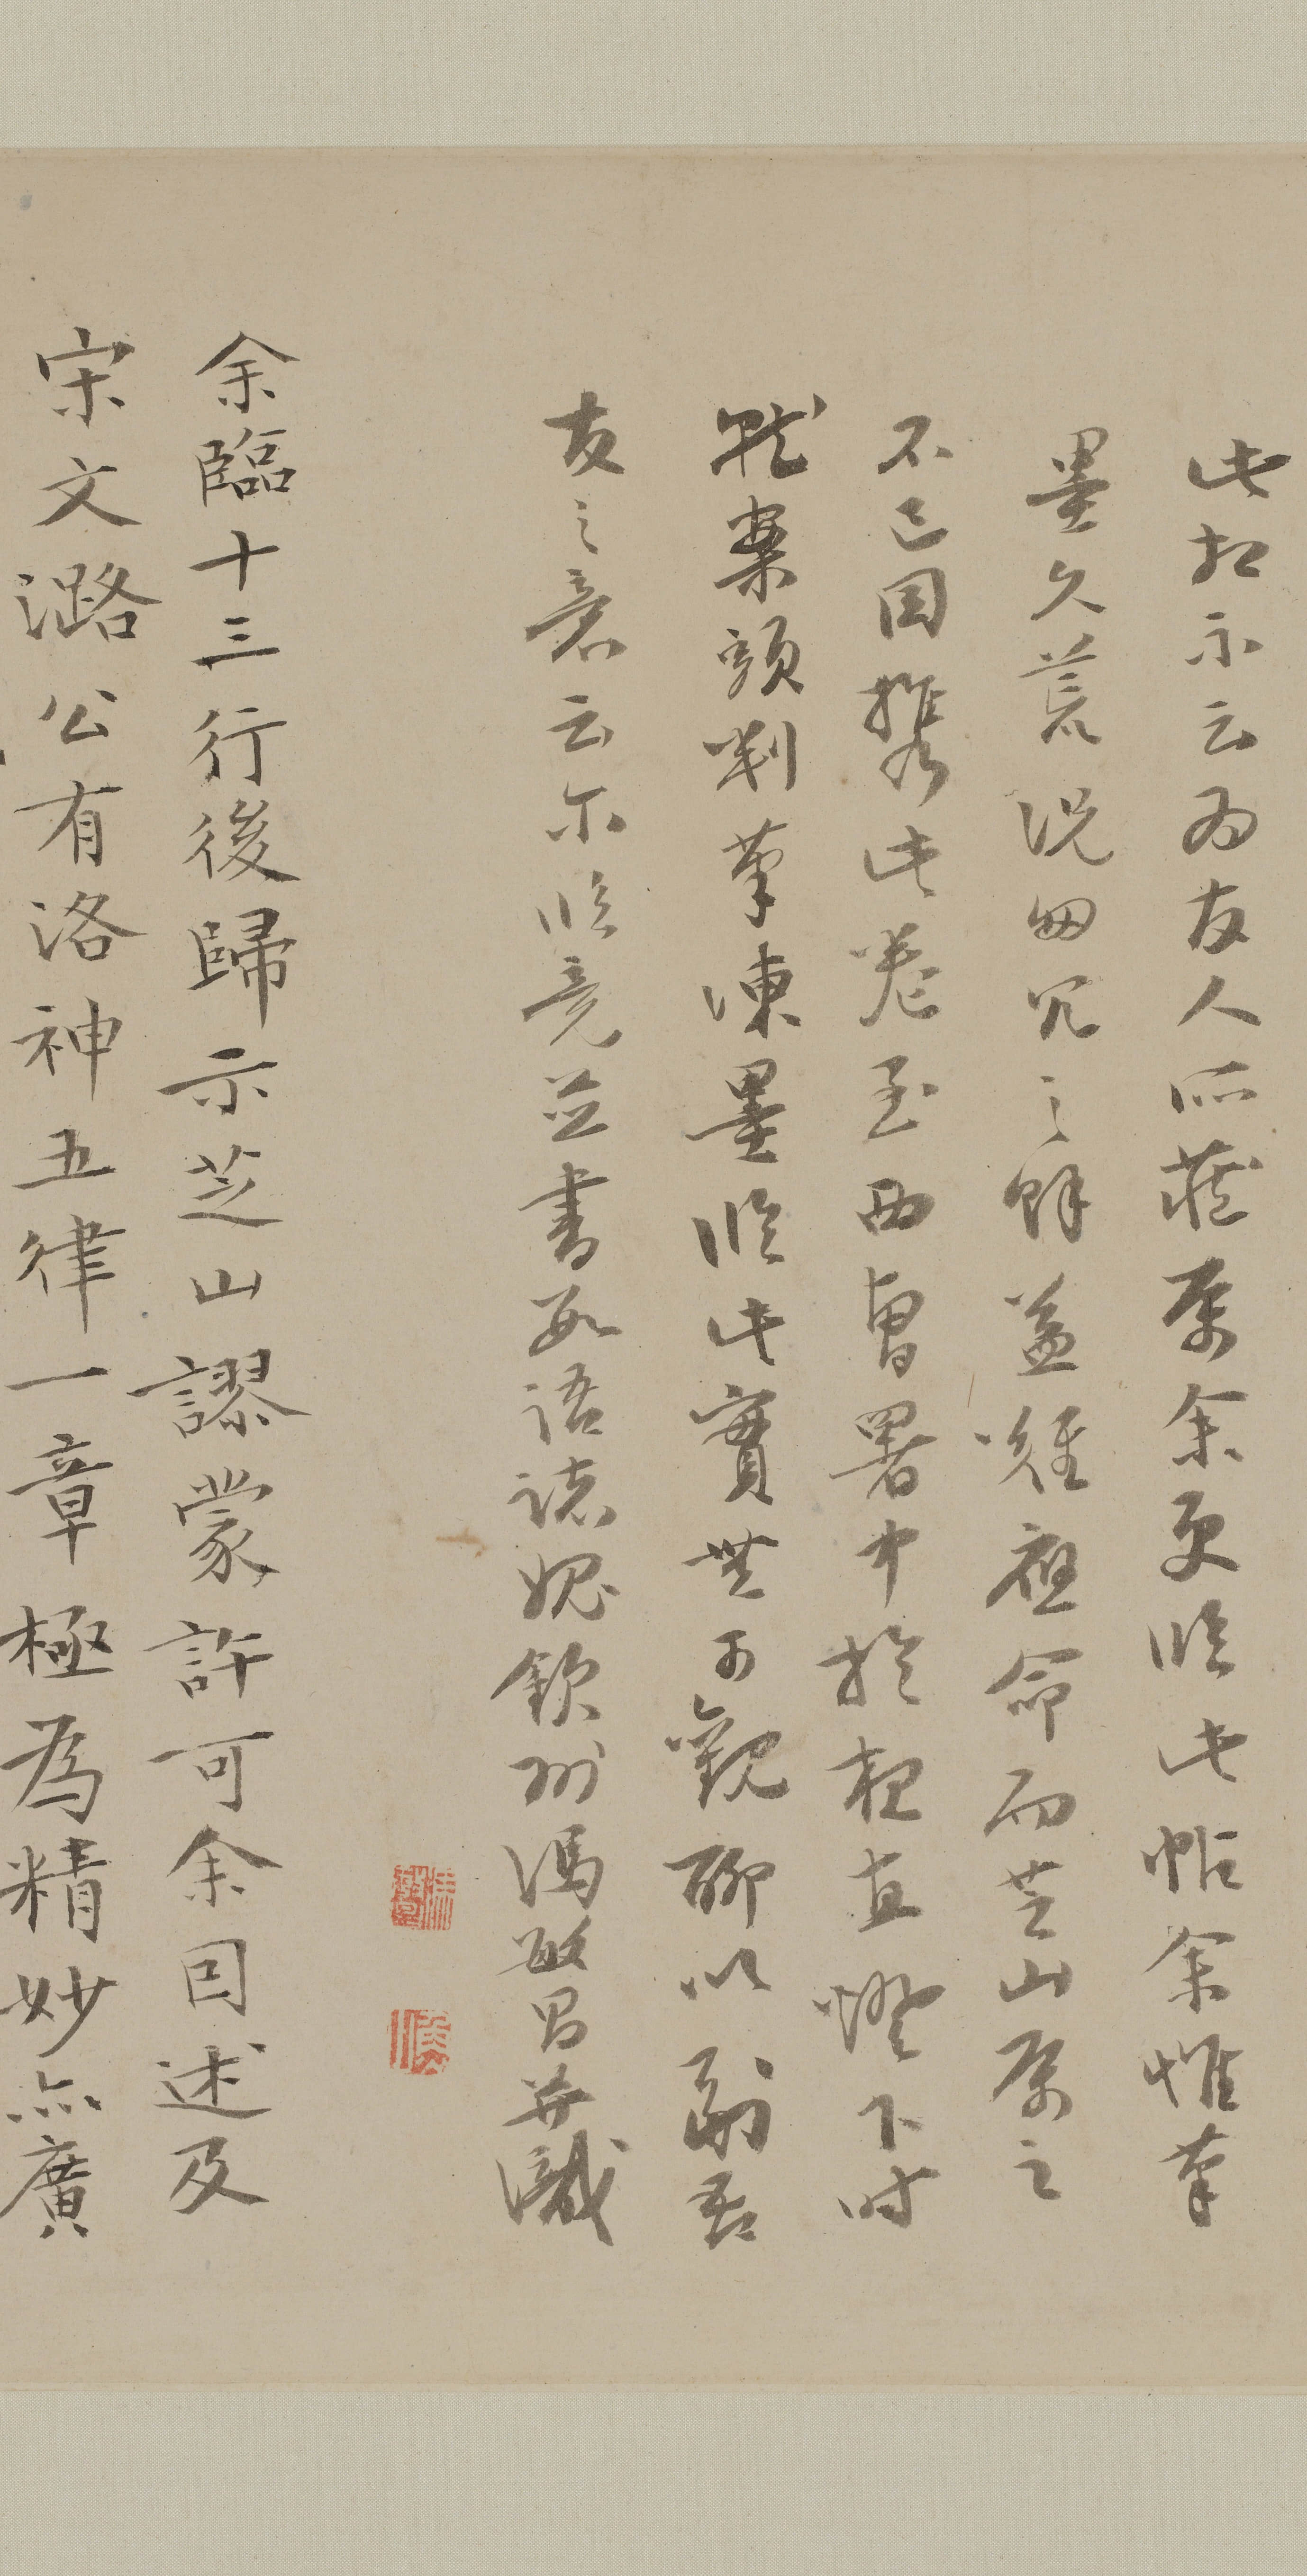 此相示云為友人所藏屬余更臨此帖余惟筆
墨久荒況匆冗之餘益難應命而芝山屬之
不已因攜此卷至西曹署中於夜直燈下時
就案頭判筆凍墨臨此實無可觀聊以副吾
友之意云尔臨竟並書數語誌愧欽州馮敏昌并識
余臨十三行後歸示芝山謬蒙許可余因述及
宋文潞公有洛神五律一章極為精妙亦廣